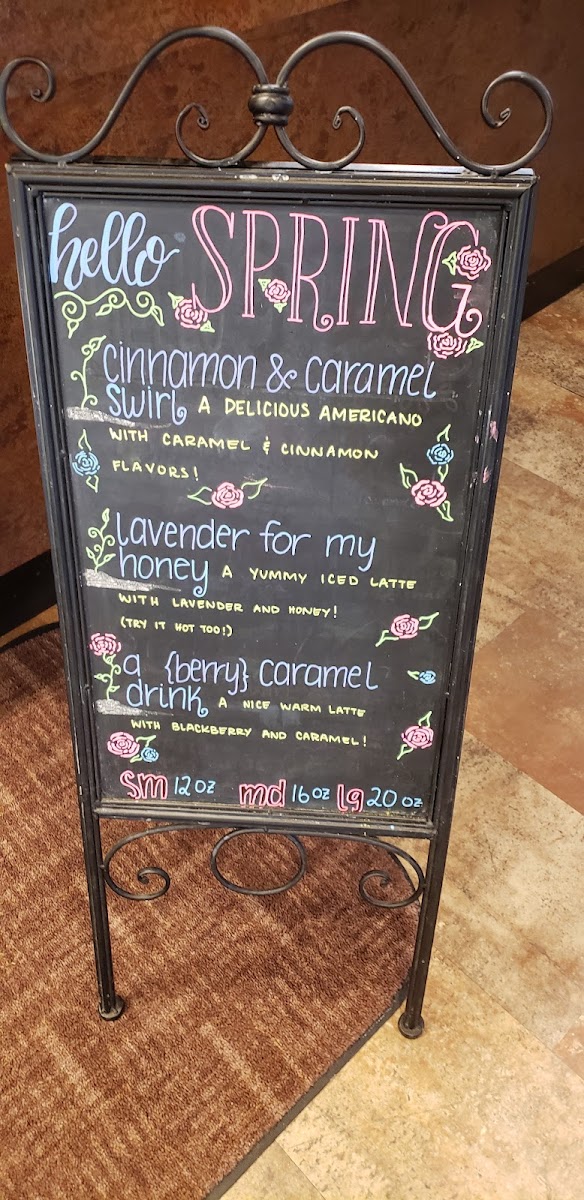 hello SPRING
cinnamon & caramel
swirl A DELICIOUS AMERICANO
WITH CARAMEL & CINNAMON
FLAVORS!
lavender for my
honey A YUMMY ICED LATTE
WITH LAVENDER AND HONEY!
(TRY IT HOT TOO!)
a {berry} caramel
drink A NICE WARM LATTE
WITH BLACKBERRY AND CARAMEL!
sm 12 oz md 16 oz lg 20 oz